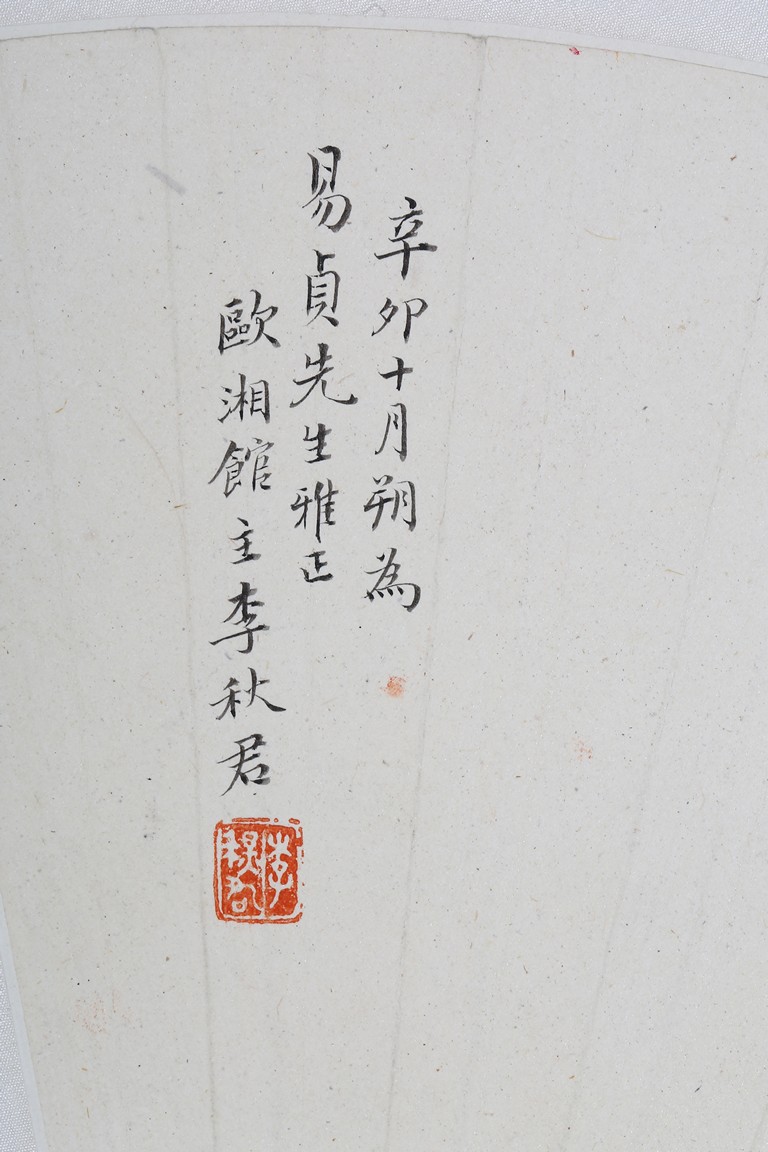 辛卯十月朔為
易貞先生雅正
歐湘館主李秋君
李秋君